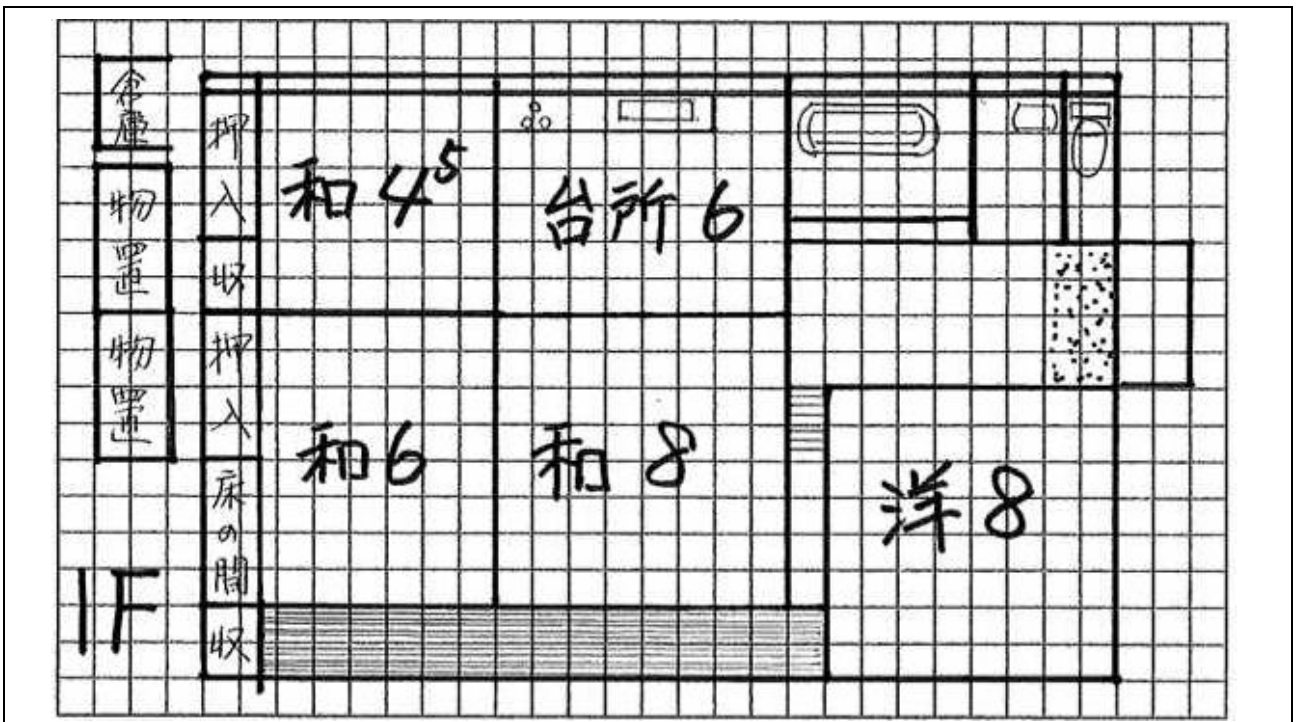 倉庫
物置
物置
押入
収
押入
床の間
収
和4⁵
台所6
和6
和8
洋8
1F